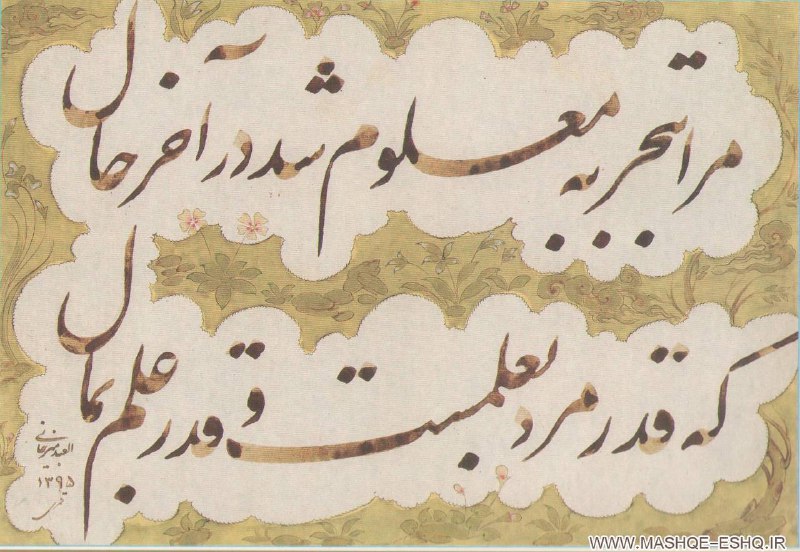 مرا بتجربه معلوم شد در آخر حال
که قدر مرد بعلمست و قدر علم بمال
العبد میرخانی
۱۳۹۵
WWW.MASHQE-ESHQ.IR